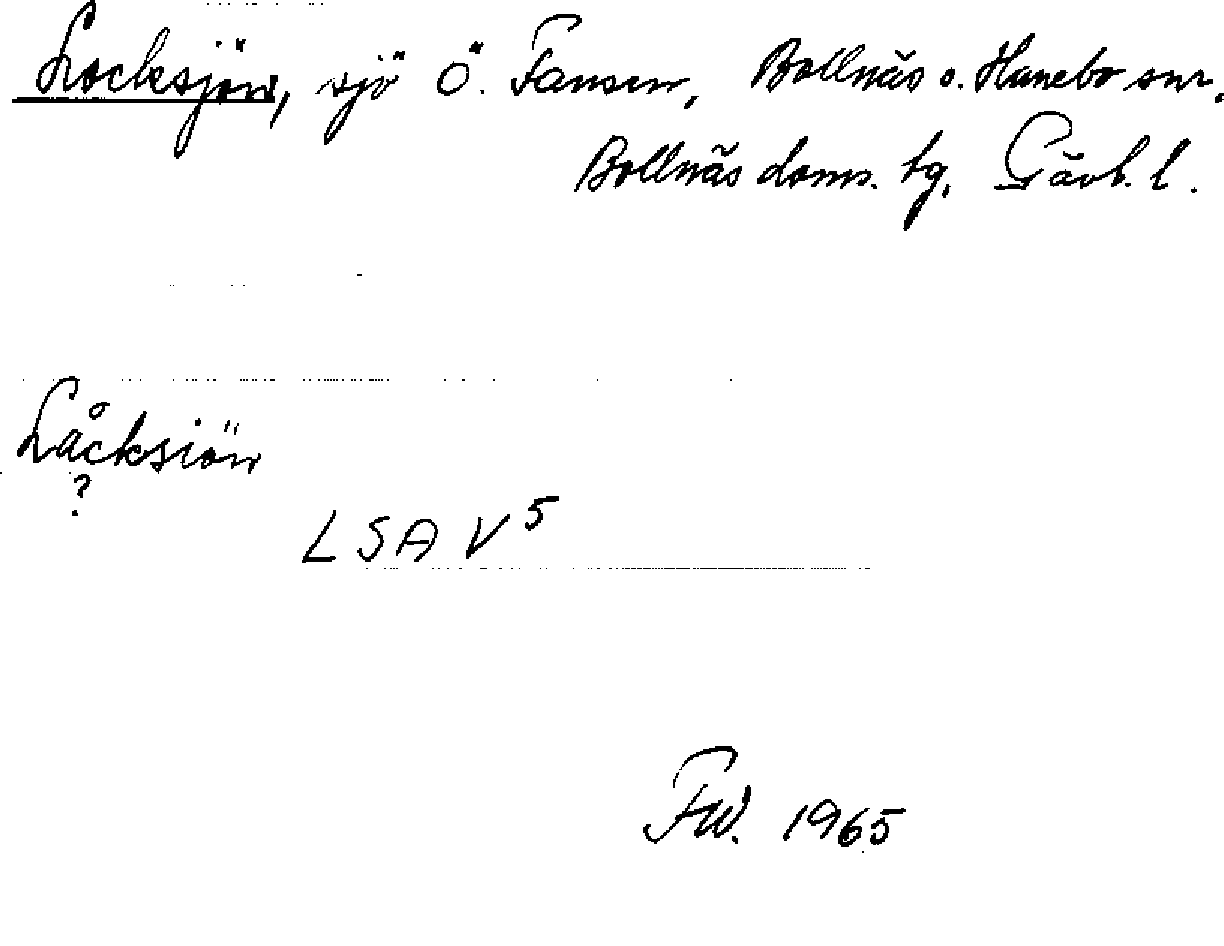 Locksjön, sjö Ö. Fansen, Bollnäs o. Hanebo snr,
Bollnäs doms. tg, Gävb. l.
Låcksiön
?
LSA V5
FW. 1965